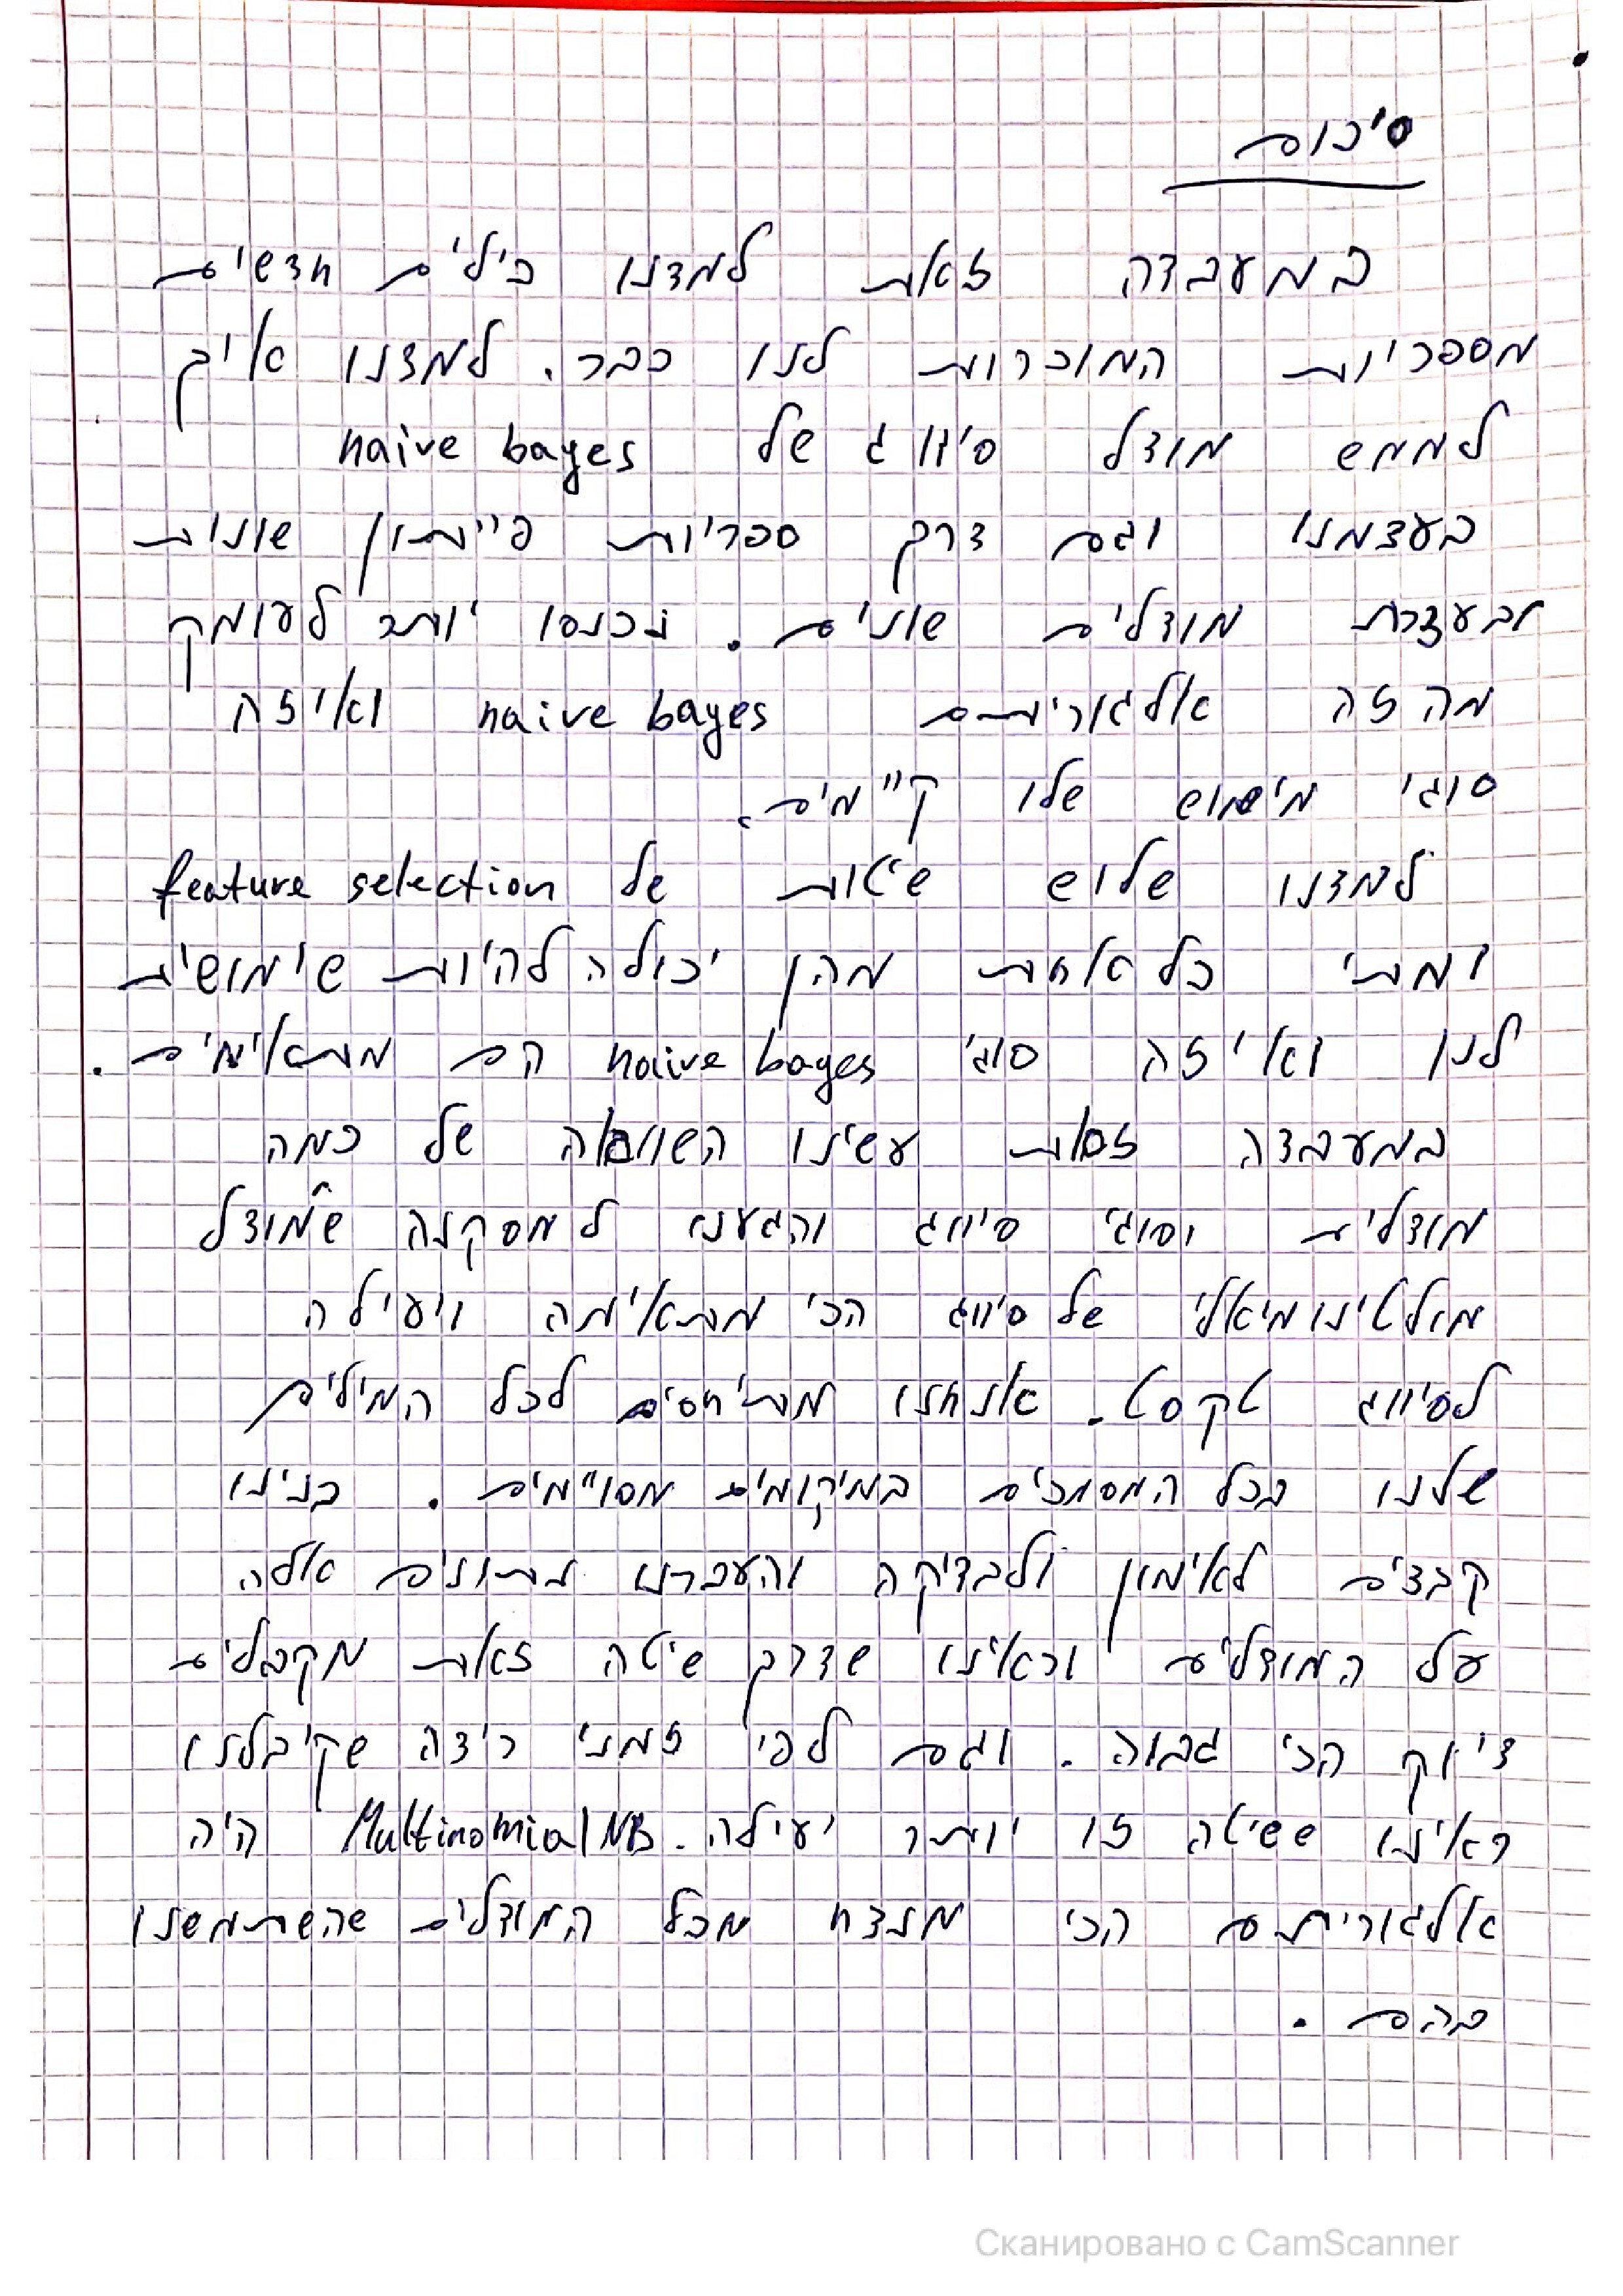 סיכום
במעבדה זאת למדנו כילים חדשים
מספריות המוכרות לנו כבר. למדנו איך
לממש מודל סיווג של naive bayes
בעצמנו וגם דרך ספריות פייתון שונות
ובעזרת מודלים שונים. נכנסו יותר לעומק
מה זה אלגוריתם naive bayes ואיזה
סוגי מימוש שלו קיימים.
למדנו שלוש שיטות של feature selection
ומתי כל אחת מהן יכולה להיות שימושית
לנו ואיזה סוגי naive bayes הם מתאימים.
במעבדה זאת עשינו השוואה של כמה
מודלים וסוגי סיווג והגענו למסקנה שמודל
מולטינומיאלי של סיווג הכי מתאימה ויעילה
לסיווג טקסט. אנחנו מתיחסים לכל המילים
שלנו בכל המסמכים במיקומים מסויימים. בנינו
קבצים לאימון ולבדיקה והעברנו נתונים אלה
על המודלים וראינו שדרך שיטה זאת מקבלים
דיוק הכי גבוה. וגם לפי זמני ריצה שקיבלנו
ראינו ששיטה זו יותר יעילה. MultinomialNB היה
אלגוריתם הכי מנצח מכל המודלים שהשתמשנו
בהם.
Сканировано с CamScanner